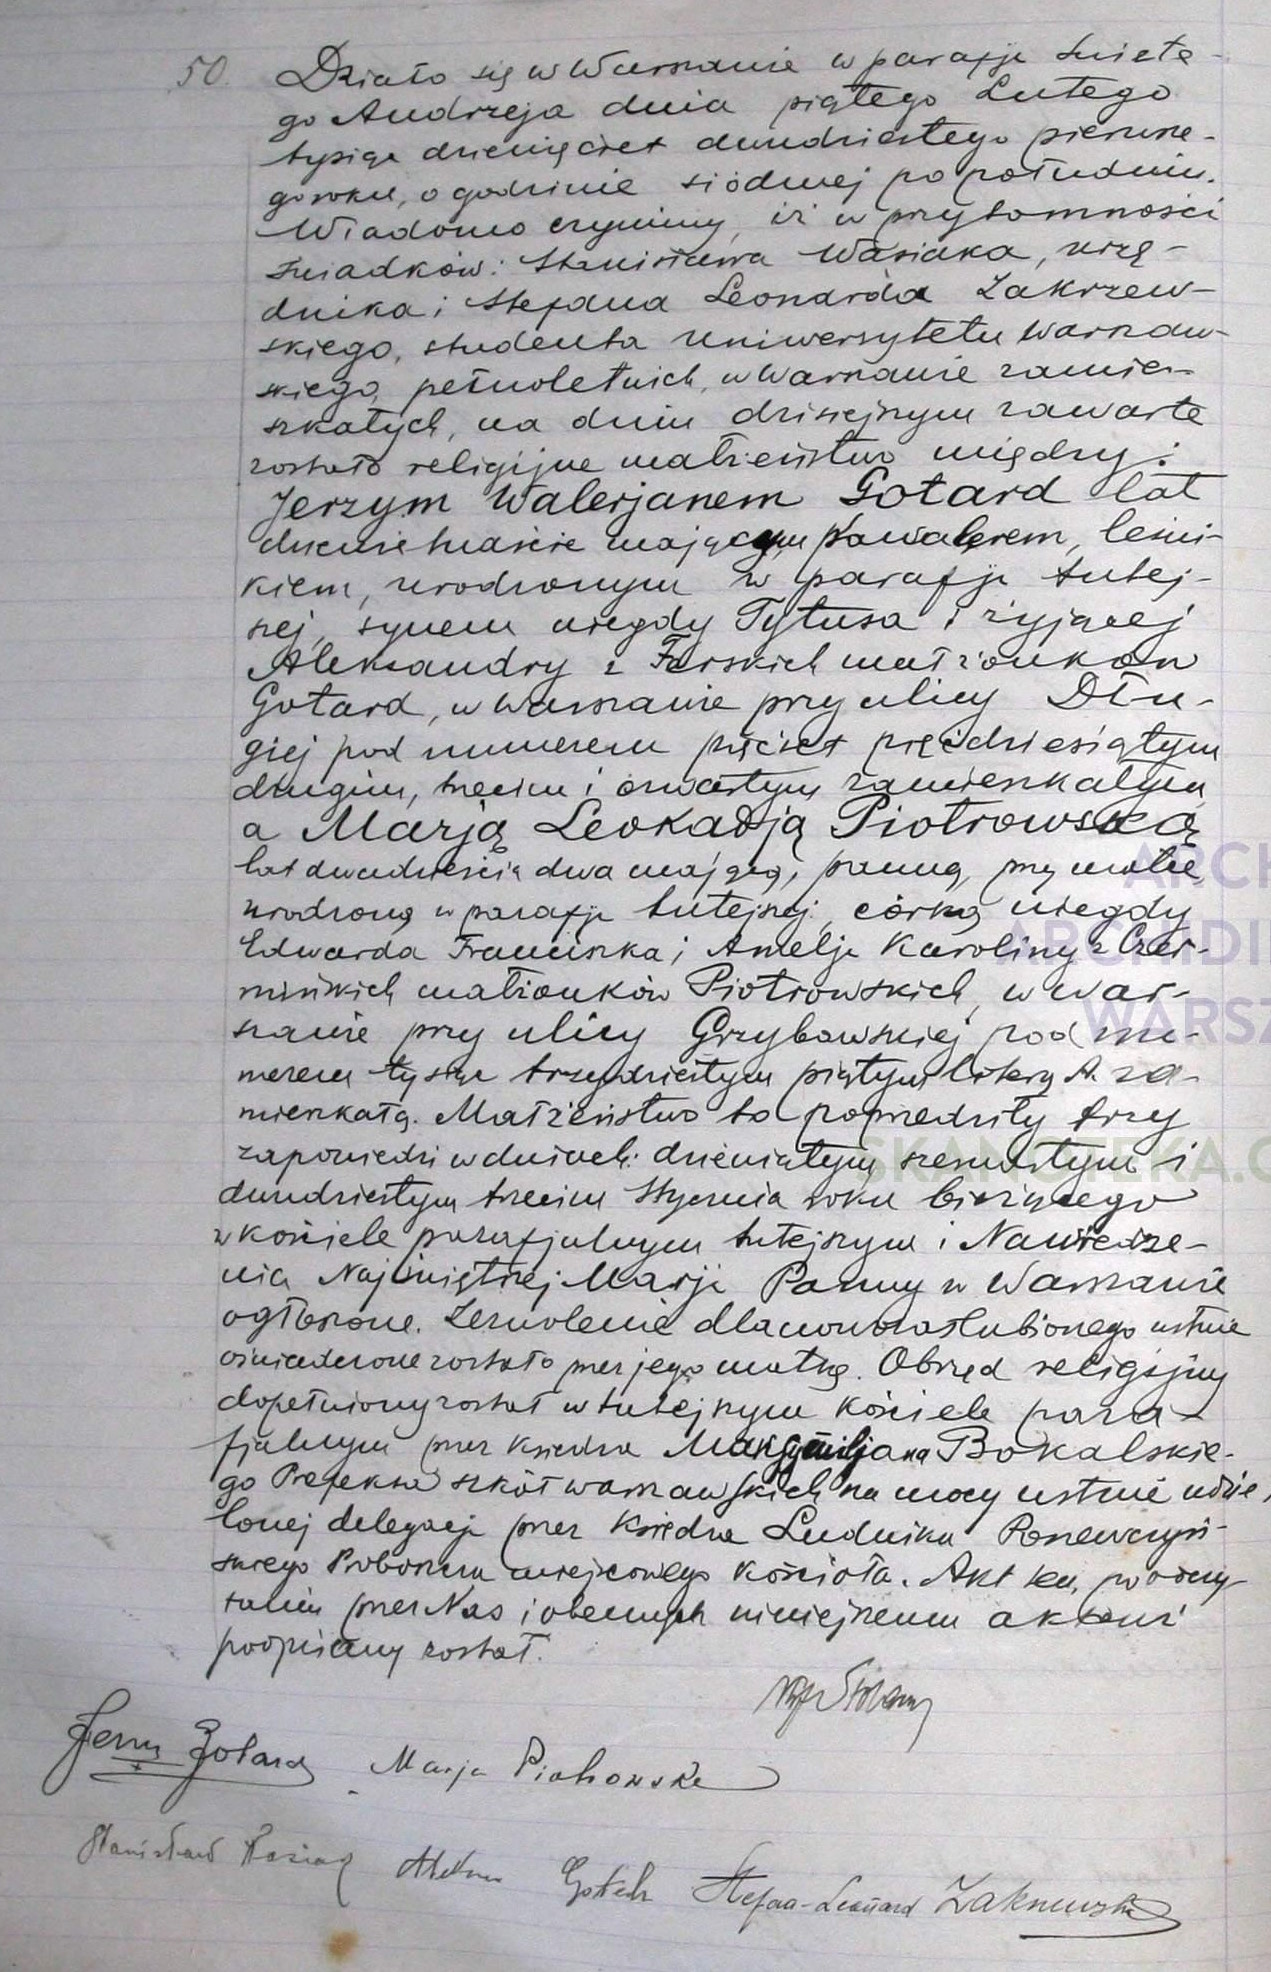 50. Działo się w Warszawie w parafji Święte-
go Andrzeja dnia piątego Lutego
tysiąc dziewięćset dwudziestego pierwsze-
go roku, o godzinie siódmej po południu.
Wiadomo czynimy, iż w przytomności
świadków: Stanisława Wasiaka, urzę-
dnika i Stefana Leonarda Zakrzew-
skiego, studenta Uniwersytetu Warszaw-
skiego, pełnoletnich, w Warszawie zamie-
szkałych, na dniu dzisiejszym zawarte
zostało religijne małżeństwo między:
Jerzym Walerjanem Gotard lat
dwanaście mającym, kawalerem, leśni-
kiem, urodzonym w parafji tutej-
szej, synem niegdy Tytusa i żyjącej
Aleksandry z Furskich małżonków
Gotard, w Warszawie przy ulicy Dłu-
giej pod numerem pięćset pięćdziesiątym
drugim, trzecim i czwartym zamieszkałym
a Marją Leokadją Piotrowską
lat dwadzieścia dwa mającą, panną, przy matce,
urodzoną w parafji tutejszej, córką niegdy
Edwarda Franciszka i Amelji Karoliny z Czer-
mińskich małżonków Piotrowskich, w War-
szawie przy ulicy Grzybowskiej pod nu-
merem tysiąc trzydziestym piątym literą A. za-
mieszkałą. Małżeństwo to poprzedziły trzy
zapowiedzi w dniach: dziewiątym, szesnastym i
dwudziestym trzecim Stycznia roku bieżącego
w kościele parafjalnym tutejszym i Nawiedze-
nia Najświętszej Marji Panny w Warszawie
ogłoszone. Zezwolenie dla nowozaślubionego ustnie
oświadczone zostało przez jego matkę. Obrzęd religijny
dopełniony został w tutejszym kościele para-
fjalnym przez Księdza Maksymiljana Bokalskie-
go Prefekta szkół warszawskich na mocy ustnie udzie-
lonej delegacji przez Księdza Ludwika
Proboszcza miejscowego kościoła. Akt ten, po odczy-
taniu przez Nas i obecnych niniejszemu aktowi
podpisany został.
Jerzy Gotard Marja Piotrowska
Stanisław Wasiak Gotard Stefan-Leonard Zakrzewski
ARCH
ARCHIDI
WARSZ
SKANOTEKA.